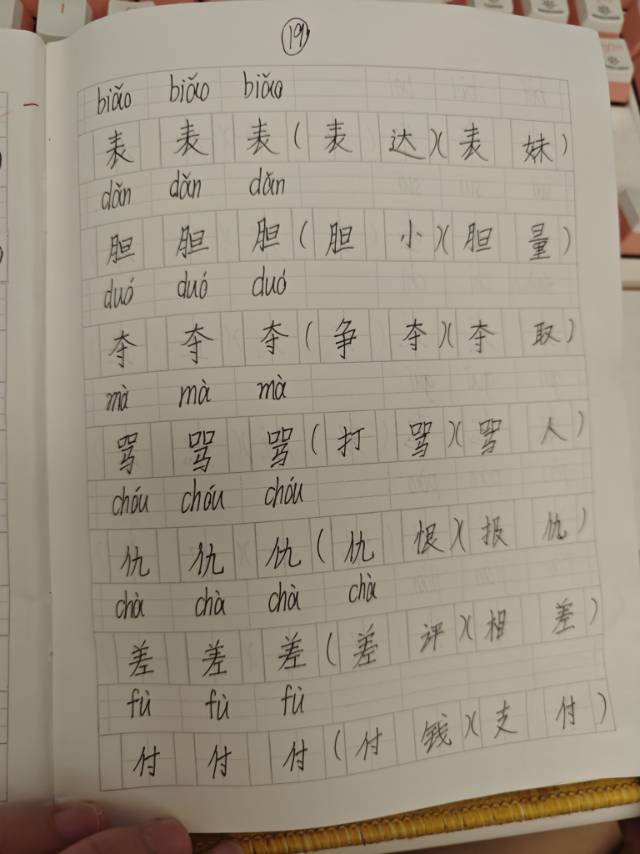 19
biǎo biǎo biǎo
表 表 表 ( 表 达 )( 表 妹 )
dǎn dǎn dǎn
胆 胆 胆 ( 胆 小 )( 胆 量 )
duó duó duó
夺 夺 夺 ( 争 夺 )( 夺 取 )
mà mà mà
骂 骂 骂 ( 打 骂 )( 骂 人 )
chóu chóu chóu
仇 仇 仇 ( 仇 恨 )( 报 仇 )
chà chà chà chà
差 差 差 ( 差 评 )( 相 差 )
fù fù fù
付 付 付 ( 付 钱 )( 支 付 )